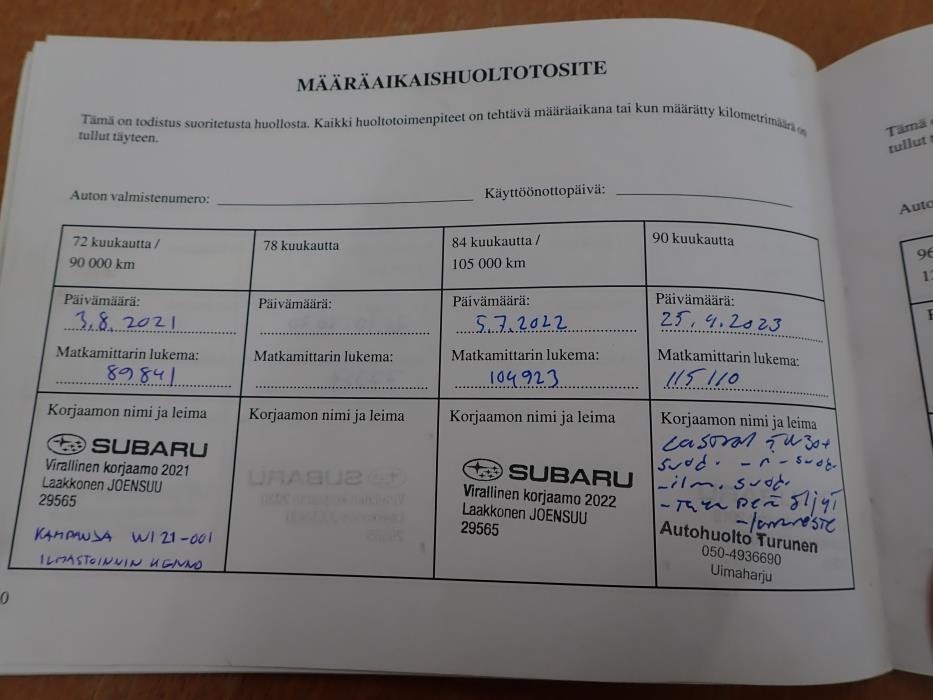 MÄÄRÄAIKAISHUOLTOTOSITE
Tämä on todistus suoritetusta huollosta. Kaikki huoltotoimenpiteet on tehtävä määräaikana tai kun määrätty kilometrimäärä on
tullut täyteen.
Auton valmistenumero:
Käyttöönottopäivä:
72 kuukautta /
90 000 km
78 kuukautta
84 kuukautta /
105 000 km
90 kuukautta
Päivämäärä:
3.8.2021
Päivämäärä:
Päivämäärä:
5.7.2022
Päivämäärä:
25.4.2023
Matkamittarin lukema:
89841
Matkamittarin lukema:
Matkamittarin lukema:
104923
Matkamittarin lukema:
115110
Korjaamon nimi ja leima
SUBARU
Virallinen korjaamo 2021
Laakkonen JOENSUU
29565
KAMPANJA WI21-001
ILMASTOINNIN KENNO
Korjaamon nimi ja leima
Korjaamon nimi ja leima
SUBARU
Virallinen korjaamo 2022
Laakkonen JOENSUU
29565
Korjaamon nimi ja leima
Castrol
suod. - r - suod.
- ilm. suod.
- perä öljyt
- jarruneste
Autohuolto Turunen
050-4936690
Uimaharju
0
Tämä
tullut
Auto
96